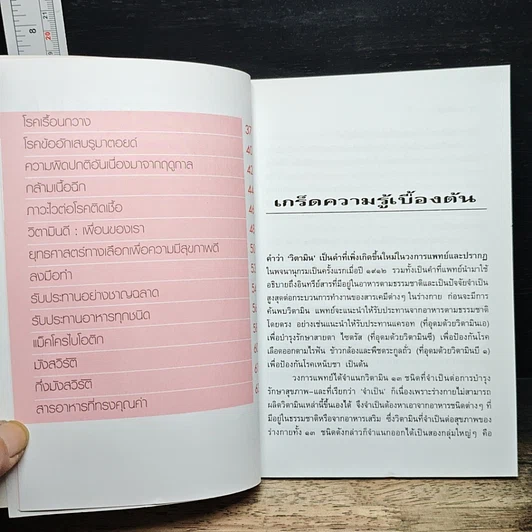 8
20
21
โรคเรื้อนกวาง 37
โรคข้ออักเสบรูมาตอยด์ 40
ความผิดปกติอันเนื่องมาจากฤดูกาล 42
กล้ามเนื้อฉีก 44
ภาวะไวต่อโรคติดเชื้อ
วิตามินดี : เพื่อนของเรา
ยุทธศาสตร์ทางเลือกเพื่อความมีสุขภาพดี
ลงมือทำ
รับประทานอย่างชาญฉลาด
รับประทานอาหารทุกชนิด
แม็คโครไบโอติก
มังสวิรัติ
กึ่งมังสวิรัติ
สารอาหารที่ทรงคุณค่า
เกร็ดความรู้เบื้องต้น
คำว่า 'วิตามิน' เป็นคำที่เพิ่งเกิดขึ้นใหม่ในวงการแพทย์และปรากฏ
ในพจนานุกรมเป็นครั้งแรกเมื่อปี ๑๙๑๒ รวมทั้งเป็นคำที่แพทย์นำมาใช้
อธิบายถึงอินทรีย์สารที่มีอยู่ในอาหารตามธรรมชาติและเป็นปัจจัยจำเป็น
สูงสุดต่อกระบวนการทำงานของสารเคมีต่างๆ ในร่างกาย ก่อนจะมีการ
ค้นพบวิตามิน แพทย์จะแนะนำให้รับประทานจากอาหารตามธรรมชาติ
โดยตรง อย่างเช่นแนะนำให้รับประทานแครอท (ที่อุดมด้วยวิตามินเอ)
เพื่อบำรุงรักษาสายตา ไซตรัส (ที่อุดมด้วยวิตามินซี) เพื่อป้องกันโรค
เลือดออกตามไรฟัน ข้าวกล้องและพืชตระกูลถั่ว (ที่อุดมด้วยวิตามินบี ๑)
เพื่อป้องกันโรคเหน็บชา เป็นต้น
วงการแพทย์ได้จำแนกวิตามิน ๑๓ ชนิดที่จำเป็นต่อการบำรุง
รักษาสุขภาพ–และที่เรียกว่า 'จำเป็น' ก็เนื่องเพราะร่างกายไม่สามารถ
ผลิตวิตามินเหล่านี้ขึ้นเองได้ จึงจำเป็นต้องหาเอาจากอาหารชนิดต่างๆ ที่
มีอยู่ในธรรมชาติหรือจากอาหารเสริม ซึ่งวิตามินที่จำเป็นต่อสุขภาพของ
ร่างกายทั้ง ๑๓ ชนิดดังกล่าวก็จำแนกออกได้เป็นสองกลุ่มใหญ่ๆ คือ